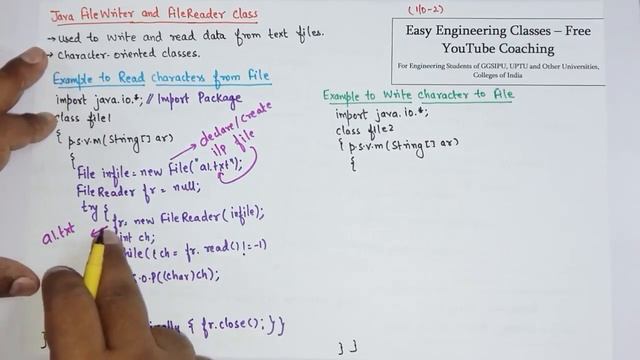 Java FileWriter and FileReader Class
(I/O-2)
→ Used to write and read data from text files.
→ Character-oriented classes.
Easy Engineering Classes – Free
YouTube Coaching
For Engineering Students of GGSIPU, UPTU and Other Universities,
Colleges of India
Example to Read characters from File
import java.io.*; // Import Package
class file1
{ p.s.v.m (String [] ar)
{
declare/create
i/p file
File infile = new File("a1.txt");
FileReader fr = null;
try {
fr = new FileReader (infile);
a1.txt
int ch;
while((ch = fr.read() != -1)
S.O.P((char)ch);
finally { fr.close(); } }
}
Example to Write character to File
import java.io.*;
class file2
{ p.s.v.m (String [] ar)
{
} }